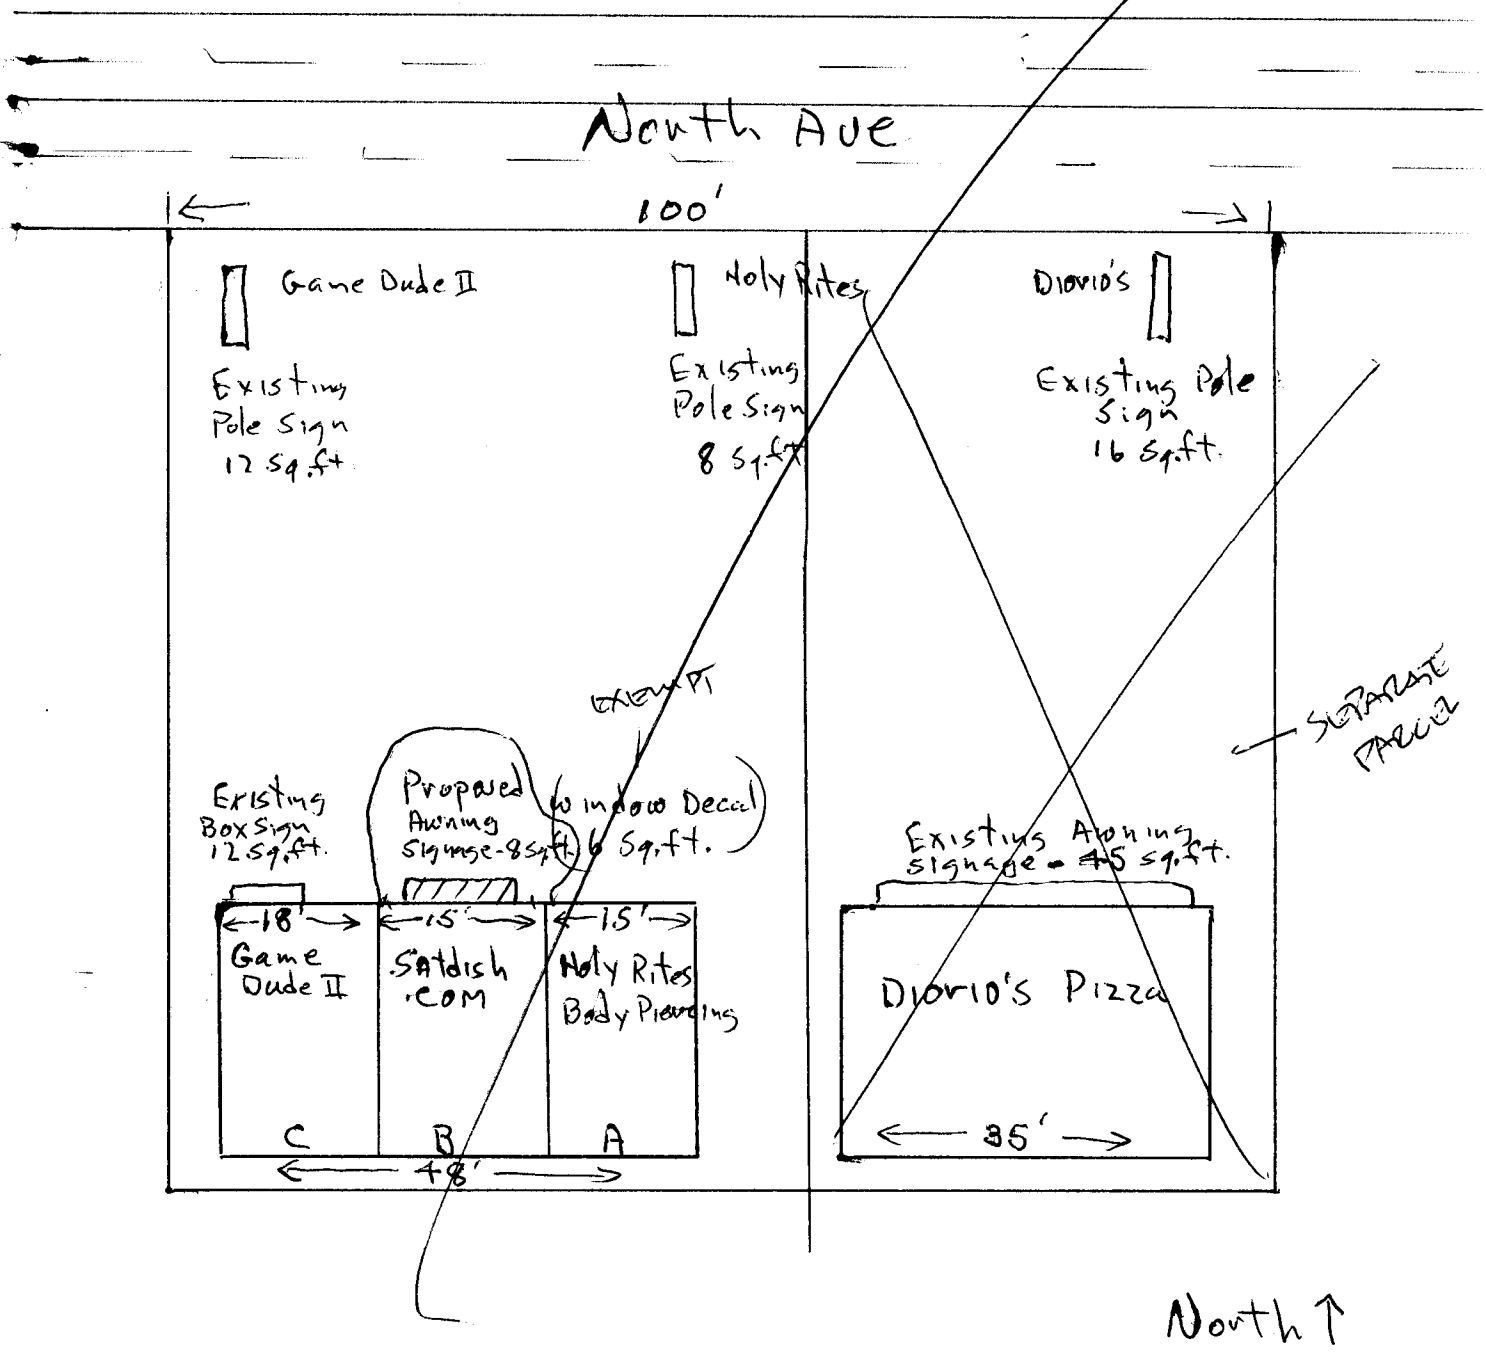 North Ave
100'
Game Dude II
Holy Rites
Diorio's
Existing
Pole Sign
12 Sq.ft.
Existing
Pole Sign
8 Sq.ft
Existing Pole
Sign
16 Sq.ft.
EXEMPT
SEPARATE
PARCEL
Existing
Box Sign
12 Sq.ft.
Proposed
Awning
Signage - 8 Sq.ft.
(Window Decal)
6 Sq.ft.
Existing Awning
signage - 45 sq.ft.
18'
15'
15'
Game
Dude II
Satdish
.COM
Holy Rites
Body Piercing
Diorio's Pizza
C
B
A
48'
35'
North ↑